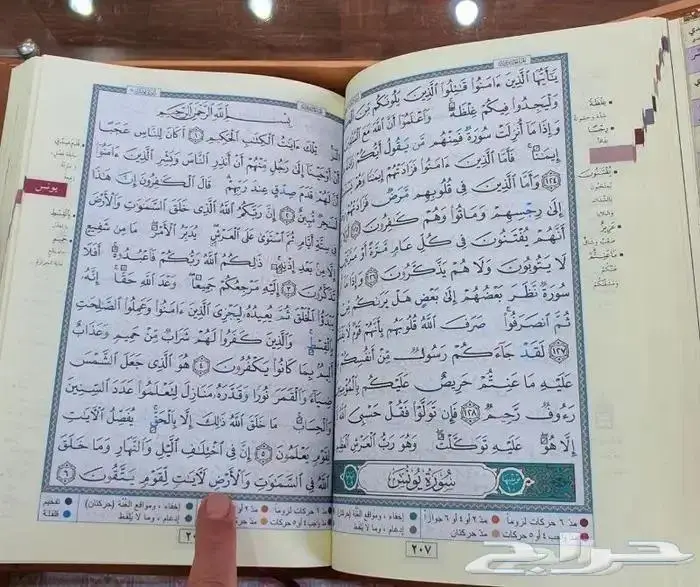 يَٰٓأَيُّهَا ٱلَّذِينَ ءَامَنُوا۟ قَٰتِلُوا۟ ٱلَّذِينَ يَلُونَكُم مِّنَ
وَلْيَجِدُوا۟ فِيكُمْ غِلْظَةً ۚ وَٱعْلَمُوٓا۟ أَنَّ ٱللَّهَ مَعَ
وَإِذَا مَآ أُنزِلَتْ سُورَةٌ فَمِنْهُم مَّن يَقُولُ أَيُّكُمْ
إِيمَٰنًا ۚ فَأَمَّا ٱلَّذِينَ ءَامَنُوا۟ فَزَادَتْهُمْ إِيمَٰنًا وَهُمْ
١٢٤ وَأَمَّا ٱلَّذِينَ فِى قُلُوبِهِم مَّرَضٌ فَزَادَتْهُمْ
إِلَىٰ رِجْسِهِمْ وَمَاتُوا۟ وَهُمْ كَٰفِرُونَ ١٢٥
أَنَّهُمْ يُفْتَنُونَ فِى كُلِّ عَامٍ مَّرَّةً أَوْ مَرَّتَيْنِ
لَا يَتُوبُونَ وَلَا هُمْ يَذَّكَّرُونَ ١٢٦ وَإِذَا مَآ
سُورَةٌ نَّظَرَ بَعْضُهُمْ إِلَىٰ بَعْضٍ هَلْ يَرَىٰكُم مِّنْ
ثُمَّ ٱنصَرَفُوا۟ ۚ صَرَفَ ٱللَّهُ قُلُوبَهُم بِأَنَّهُمْ قَوْمٌ لَّا
١٢٧ لَقَدْ جَآءَكُمْ رَسُولٌ مِّنْ أَنفُسِكُمْ
عَلَيْهِ مَا عَنِتُّمْ حَرِيصٌ عَلَيْكُم بِٱلْمُؤْمِنِينَ
رَءُوفٌ رَّحِيمٌ ١٢٨ فَإِن تَوَلَّوْا۟ فَقُلْ حَسْبِىَ ٱللَّهُ
إِلَّا هُوَ ۖ عَلَيْهِ تَوَكَّلْتُ ۖ وَهُوَ رَبُّ ٱلْعَرْشِ ٱلْعَظِيمِ
سُورَةُ يُونُسَ
غِلْظَةً
رِجْسًا
يُفْتَنُونَ
عَزِيزٌ
مَا عَنِتُّمْ
مدّ ٦ حركات لزوماً
مدّ ٢ أو ٤ أو ٦ جوازاً
إخفاء، ومواقع الغُنَّة (حركتان)
مدّ حركتان
إدغام، وما لا يُلفَظ
٢٠٧
بِسْمِ ٱللَّهِ ٱلرَّحْمَٰنِ ٱلرَّحِيمِ
الٓر ۚ تِلْكَ ءَايَٰتُ ٱلْكِتَٰبِ ٱلْحَكِيمِ ١ أَكَانَ لِلنَّاسِ عَجَبًا
أَنْ أَوْحَيْنَآ إِلَىٰ رَجُلٍ مِّنْهُمْ أَنْ أَنذِرِ ٱلنَّاسَ وَبَشِّرِ ٱلَّذِينَ ءَامَنُوٓا۟
أَنَّ لَهُمْ قَدَمَ صِدْقٍ عِندَ رَبِّهِمْ ۗ قَالَ ٱلْكَٰفِرُونَ إِنَّ هَٰذَا
لَسَٰحِرٌ مُّبِينٌ ٢ إِنَّ رَبَّكُمُ ٱللَّهُ ٱلَّذِى خَلَقَ ٱلسَّمَٰوَٰتِ وَٱلْأَرْضَ
فِى سِتَّةِ أَيَّامٍ ثُمَّ ٱسْتَوَىٰ عَلَى ٱلْعَرْشِ ۖ يُدَبِّرُ ٱلْأَمْرَ ۖ مَا مِن شَفِيعٍ
إِلَّا مِنۢ بَعْدِ إِذْنِهِۦ ۚ ذَٰلِكُمُ ٱللَّهُ رَبُّكُمْ فَٱعْبُدُوهُ ۚ أَفَلَا
تَذَكَّرُونَ ٣ إِلَيْهِ مَرْجِعُكُمْ جَمِيعًا ۖ وَعْدَ ٱللَّهِ حَقًّا ۚ إِنَّهُۥ
يَبْدَؤُا۟ ٱلْخَلْقَ ثُمَّ يُعِيدُهُۥ لِيَجْزِىَ ٱلَّذِينَ ءَامَنُوا۟ وَعَمِلُوا۟ ٱلصَّٰلِحَٰتِ
بِٱلْقِسْطِ ۚ وَٱلَّذِينَ كَفَرُوا۟ لَهُمْ شَرَابٌ مِّنْ حَمِيمٍ وَعَذَابٌ
أَلِيمٌۢ بِمَا كَانُوا۟ يَكْفُرُونَ ٤ هُوَ ٱلَّذِى جَعَلَ ٱلشَّمْسَ
ضِيَآءً وَٱلْقَمَرَ نُورًا وَقَدَّرَهُۥ مَنَازِلَ لِتَعْلَمُوا۟ عَدَدَ ٱلسِّنِينَ
وَٱلْحِسَابَ ۚ مَا خَلَقَ ٱللَّهُ ذَٰلِكَ إِلَّا بِٱلْحَقِّ ۚ يُفَصِّلُ ٱلْءَايَٰتِ
لِقَوْمٍ يَعْلَمُونَ ٥ إِنَّ فِى ٱخْتِلَٰفِ ٱلَّيْلِ وَٱلنَّهَارِ وَمَا خَلَقَ
ٱللَّهُ فِى ٱلسَّمَٰوَٰتِ وَٱلْأَرْضِ لَءَايَٰتٍ لِّقَوْمٍ يَتَّقُونَ ٦
يونس
بِالْقِسْطِ
حَمِيمٍ
إخفاء، ومواقع الغُنَّة (حركتان)
تفخيم
إدغام، وما لا يُلفَظ
قلقلة
حراج